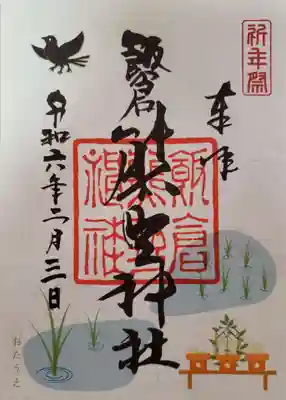 祈年祭
奉拝
飯倉
熊野神社
飯倉
熊野
神社
令和六年二月三日
おたうえ